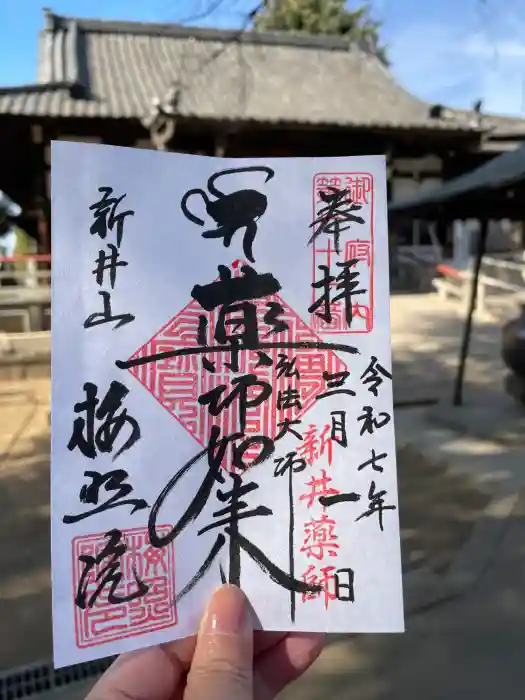 奉拝
令和七年
三月一日
新井薬師
弘法大師
薬師如来
新井山
梅照院